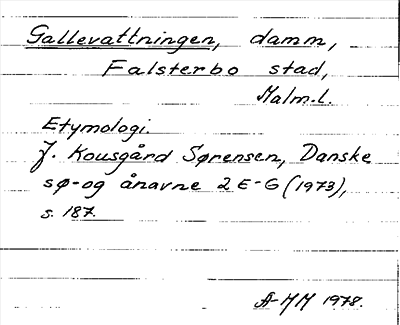 Gallevattningen, damm,
Falsterbo stad,
Malm.l.
Etymologi.
J. Kousgård Sørensen, Danske
sø- og ånavne 2 E-G (1973),
s. 187.
A-MM 1978.